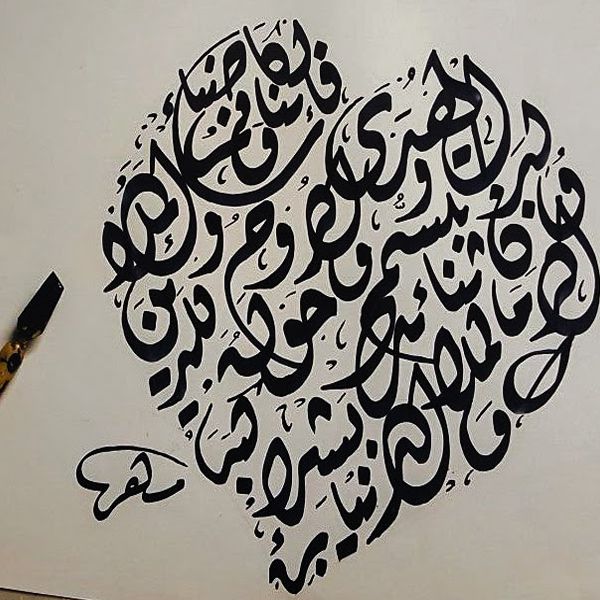 وُلِدَ الهُدَى فالكائنات ضياء
وفم الزمان تبسم وثناء
الروح والملأ الملائك حوله
للدين والدنيا به بشراء